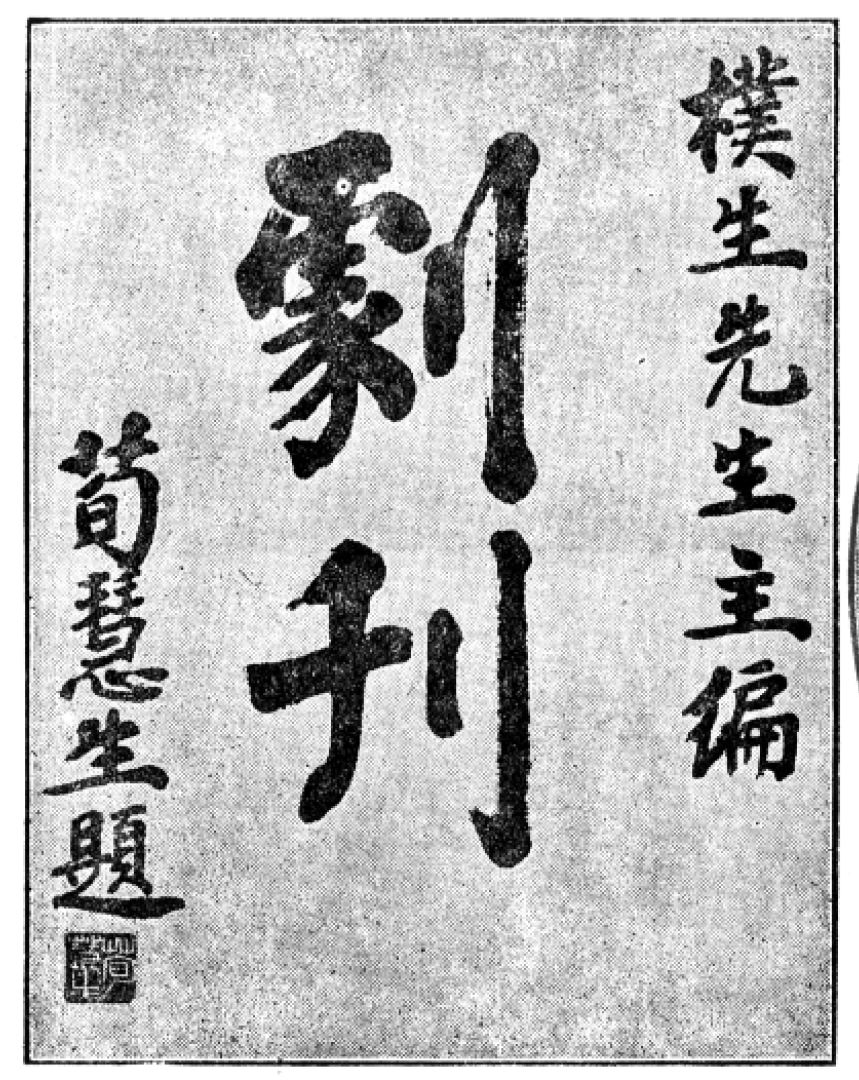 樸生先生主編
劇刊
荀慧生題